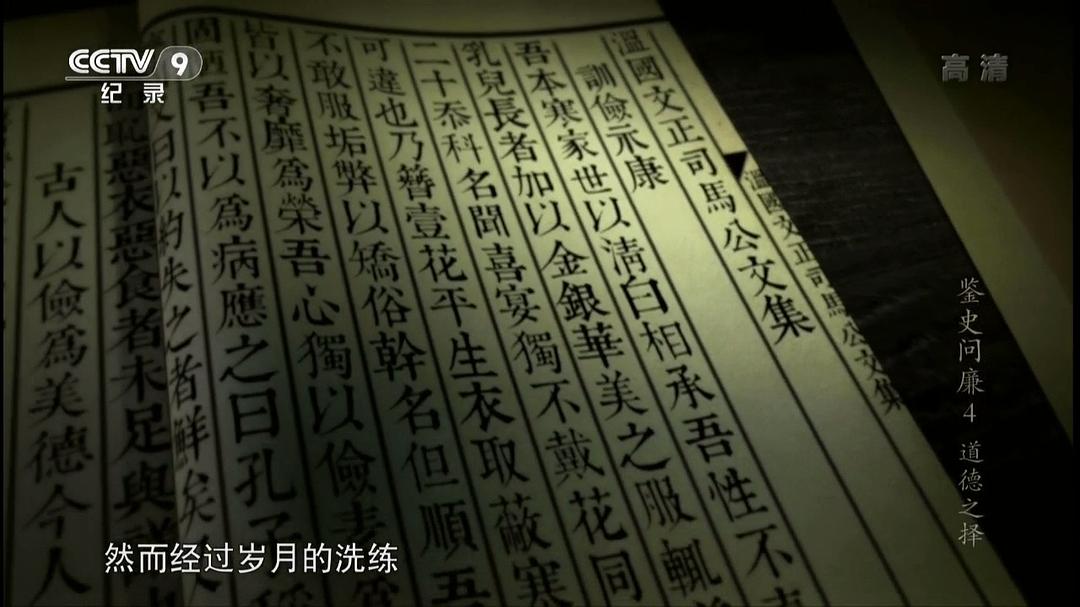 CCTV 9
纪录
高清
溫國文正司馬公文集
溫國文正司馬公文集
訓儉示康
吾本寒家世以清白相承吾性不
乳兒長者加以金銀華美之服輒
二十忝科名聞喜宴獨不戴花同
可違也乃簪壹花平生衣取蔽寒
不敢服垢弊以矯俗幹名但順吾
皆以奢靡爲榮吾心獨以儉素
固陋吾不以爲病應之曰孔子稱
曰以約失之者鮮矣又
恥惡衣惡食者未足與議
古人以儉爲美德今人
鉴史问廉4 道德之择
然而经过岁月的洗练